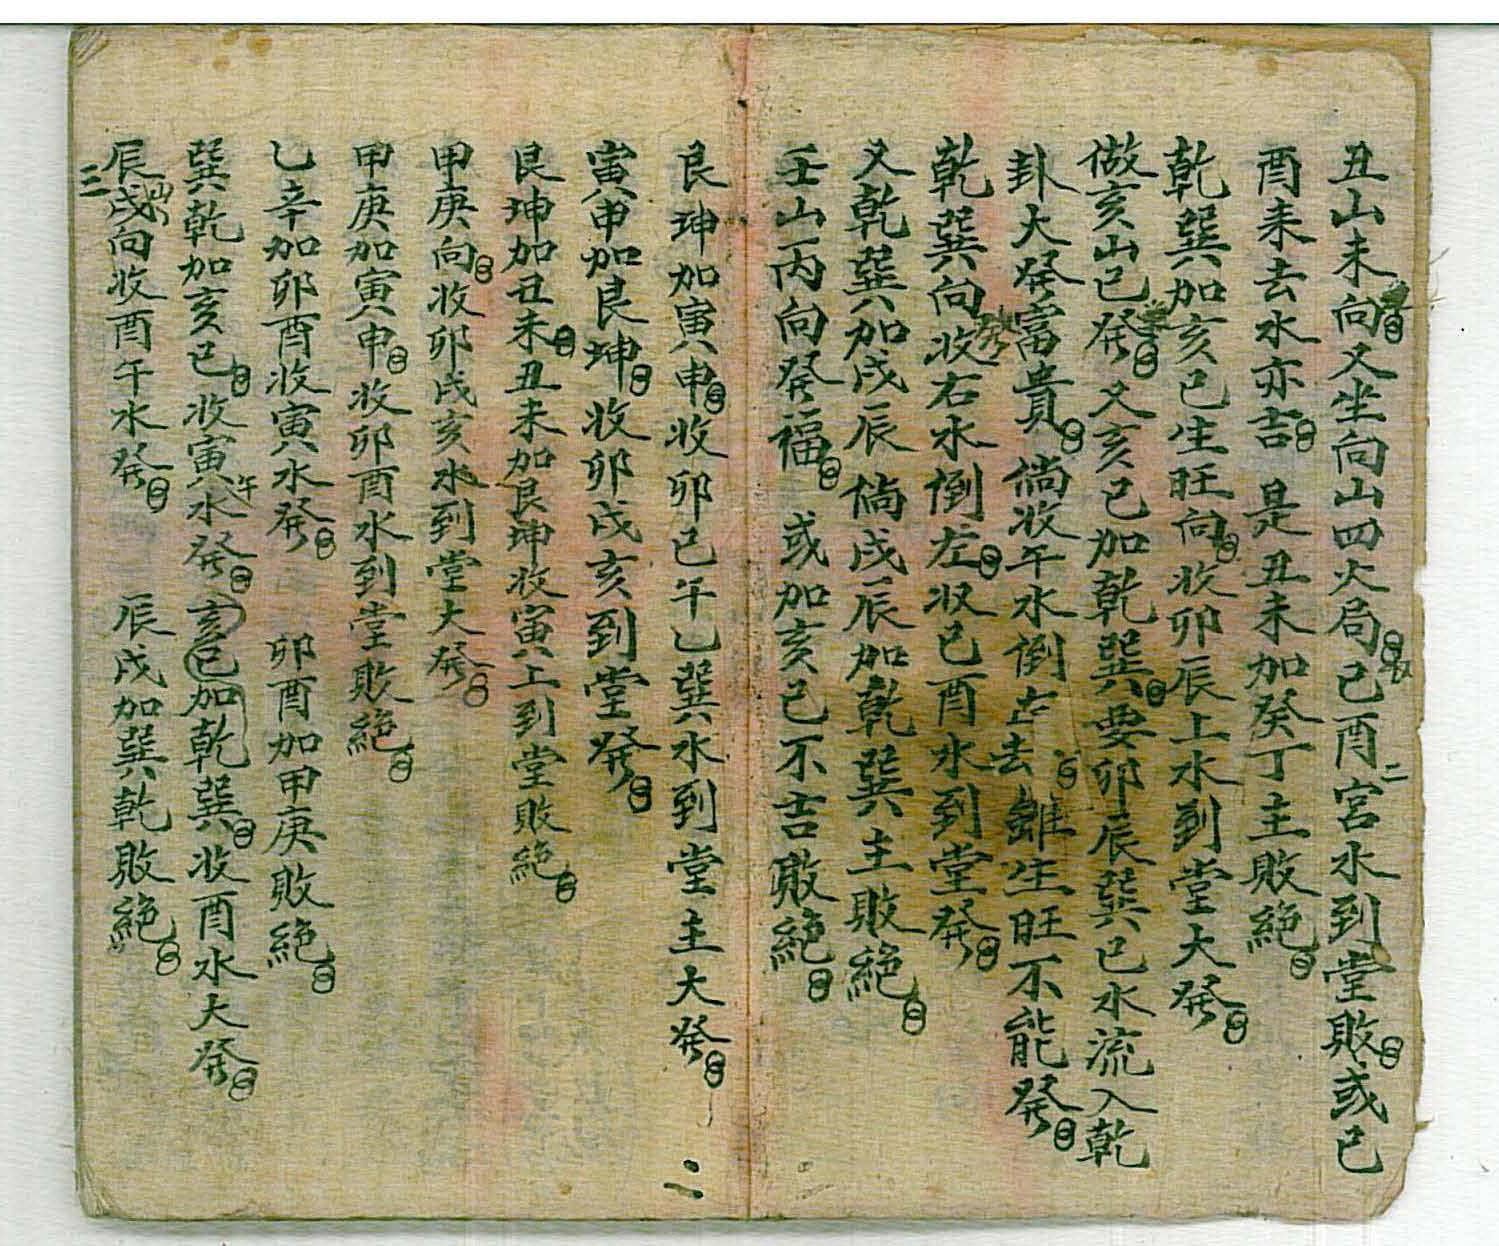 丑山未向又坐向山四火局已酉宮水到堂敗或已
酉来去水亦吉 是丑未加癸丁主敗絕
乾巽加亥已生旺向收卯辰上水到堂大發
做亥山已發又亥已加乾巽要卯辰巽已水流入乾
卦大發富貴倘收午水倒去雖生旺不能發
乾巽向收右水倒左収已酉水到堂發
又乾巽加戌辰倘戌辰加乾巽主敗絕
壬山丙向發福 或加亥已不吉敗絕
艮坤加寅申收卯已午乙巽水到堂主大發
寅申加艮坤收卯戌亥到堂發
艮坤加丑未丑未加艮坤收寅上到堂敗絕
甲庚向收卯戌亥水到堂大發
甲庚加寅申收卯酉水到堂敗絕
乙辛加卯酉收寅水發 卯酉加甲庚敗絕
巽乾加亥已收寅午水發亥已加乾巽收酉水大發
辰戌向收酉午水發 辰戌加巽乾敗絕